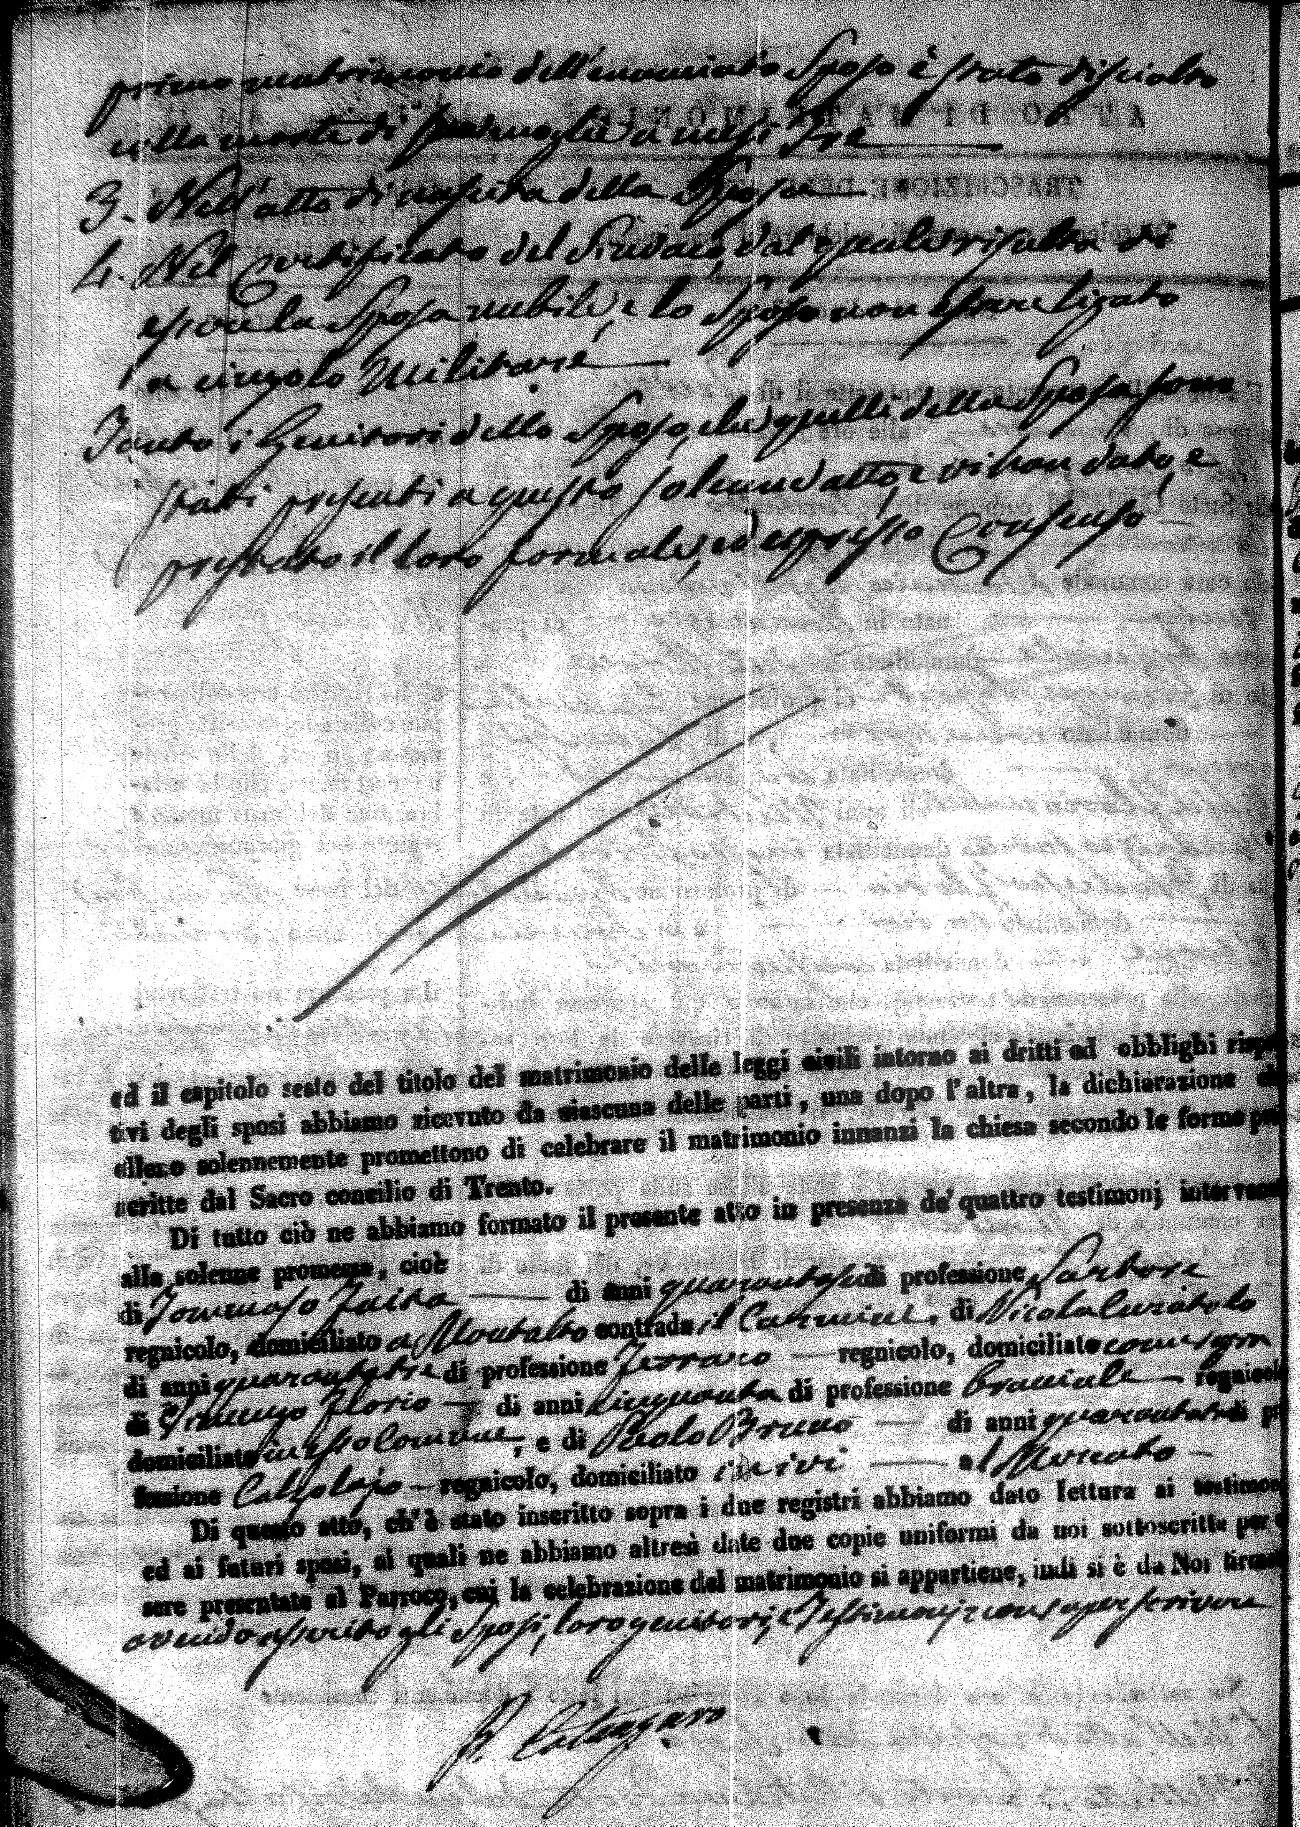 primo matrimonio dell'enunciato Sposo è stato disciolto
colla morte di sua moglie a mesi tre
3. Nell'atto di nascita della Sposa
4. Nel Certificato del Sindaco, dal quale risulta di
essere la Sposa nubile, e lo Sposo non essere ligato
a cingolo Militare
Tanto i Genitori dello Sposo, che quelli della Sposa sono
stati presenti a questo solenne atto, e vi han dato, e
prestato il loro formale, ed espresso Consenso
ed il capitolo sesto del titolo del matrimonio delle leggi civili intorno ai dritti ed obblighi rispet
tivi degli sposi abbiamo ricevuto da ciascuna delle parti, una dopo l'altra, la dichiarazione che
elleno solennemente promettono di celebrare il matrimonio innanzi la chiesa secondo le forme pre
scritte dal Sacro concilio di Trento.
Di tutto ciò ne abbiamo formato il presente atto in presenza de' quattro testimonj intervenuti
alla solenne promessa, cioè
di Tommaso Faita di anni quarantasei di professione Sartore
regnicolo, domiciliato a Montalto contrada il Carmine, di Nicola Curatolo
di anni quarantatre di professione Ferraro regnicolo, domiciliato come sopra
di Vincenzo Florio di anni cinquanta di professione bracciale regnicolo
domiciliato in esso Comune, e di Paolo Bruno di anni quarantatre di pro
fessione Calzolajo regnicolo, domiciliato ivi al Mercato
Di questo atto, ch'è stato inscritto sopra i due registri abbiamo dato lettura ai testimonj
ed ai futuri sposi, ai quali ne abbiamo altresì date due copie uniformi da noi sottoscritte per es
sere presentate al Parroco, cui la celebrazione del matrimonio si appartiene, indi si è da Noi firmato
avendo asserito gli Sposi, loro genitori, e Testimonj non saper scrivere